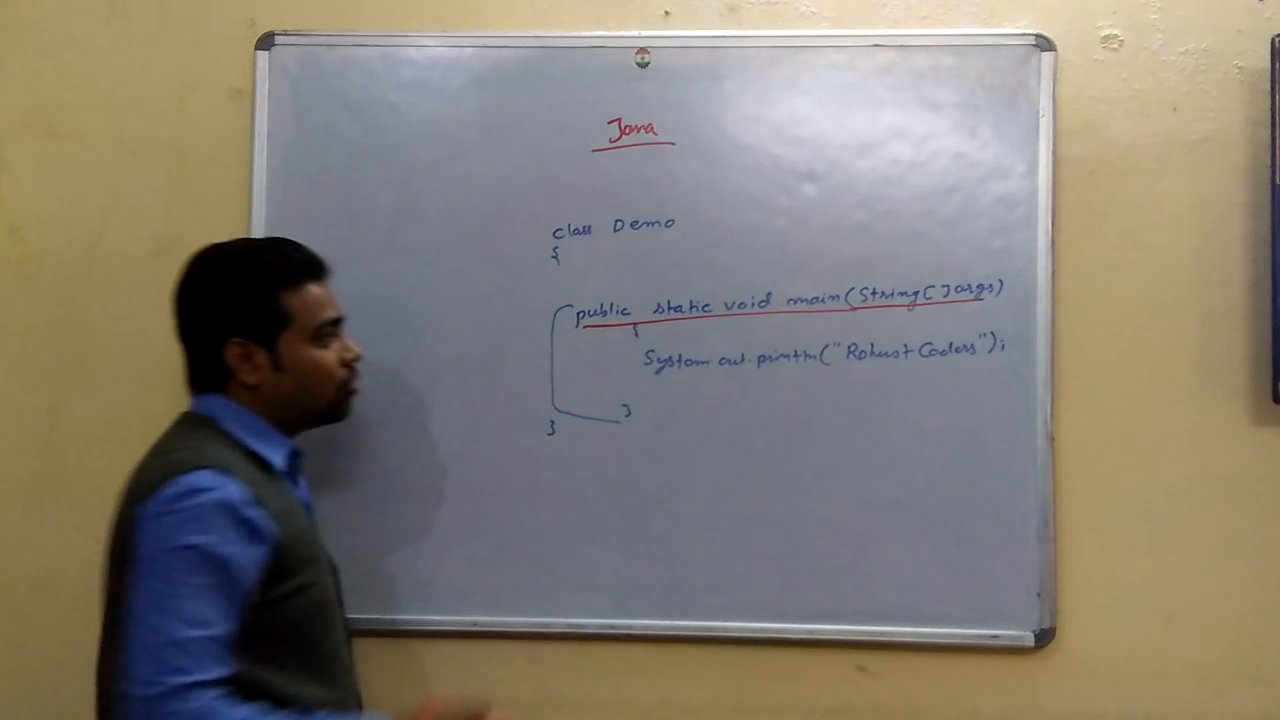 Java
class Demo
{
public static void main(String[] args)
{
System.out.println("Robust Coders");
}
}